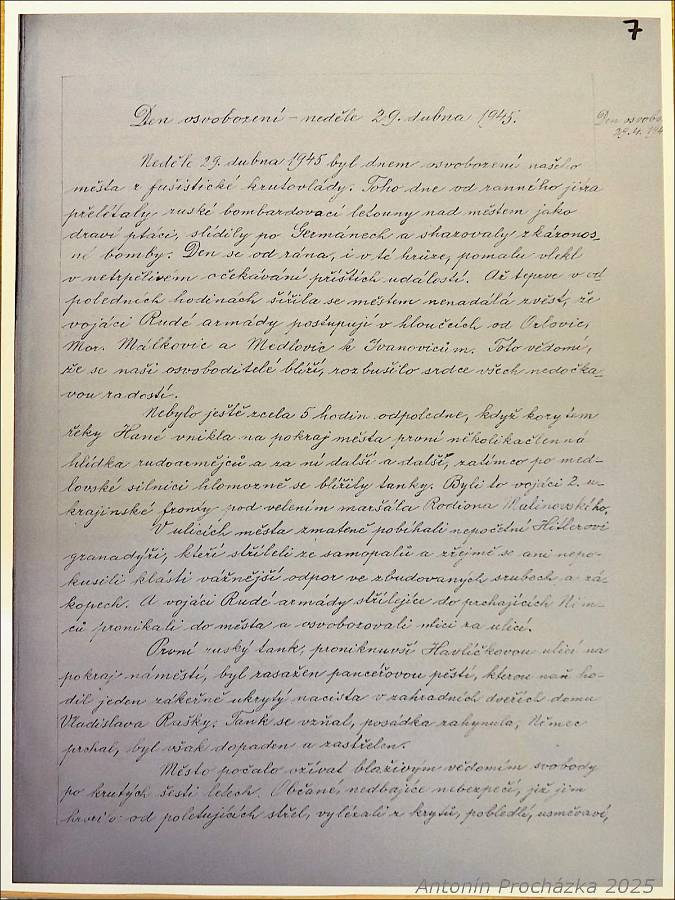 7
Den osvobození – neděle 29. dubna 1945.
Den osvobo
29.4.194
Neděle 29. dubna 1945 byl dnem osvobození našeho
města z fašistické krutovlády. Toho dne od ranného jitra
přelétaly ruské bombardovací letouny nad městem jako
draví ptáci, slídily po Germánech a shazovaly zkáronos-
ní bomby. Den se od rána, i v té hrůze, pomalu vlekl
v netrpělivém očekávání příštích událostí. Až teprve v od-
poledních hodinách šířila se městem nenadálá zvěst, že
vojáci Rudé armády postupují v hloučcích od Orlovic,
Mor. Málkovic a Medlovic k Ivanovicům. Toto vědomí,
že se naši osvoboditelé blíží, rozbušilo srdce všech nedočka-
vou radostí.
Nebylo ještě zcela 5 hodin odpoledne, když korytem
řeky Hané vnikla na pokraj města první několikačlenná
hlídka rudoarmějců a za ní další a další, zatímco po med-
lovské silnici hlomozně se blížily tanky. Byli to vojáci 2. u-
krajinské fronty pod velením maršála Rodiona Malinovského.
V ulicích města zmateně pobíhali nepočetní Hitlerovi
granadýři, kteří stříleli ze samopalů a zřejmě se ani nepo-
kusili klásti vážnější odpor ve zbudovaných srubech a zá-
kopech. A vojáci Rudé armády střílejíce do prchajících Něm-
ců pronikali do města a osvobozovali ulici za ulicí.
První ruský tank, proniknuvší Havlíčkovou ulicí na
pokraj náměstí, byl zasažen pancéřovou pěstí, kterou naň ho-
dil jeden zákeřně ukrytý nacista v zahradních dveřích domu
Vladislava Rašky. Tank se vzňal, posádka zahynula, Němec
prchal, byl však dopaden a zastřelen.
Město počalo ožívat blaživým vědomím svobody
po krutých šesti letech. Občané, nedbajíce nebezpečí, jež jim
hrozilo od poletujících střel, vylézali z krytů, pobledlí, usměvaví,
Antonín Procházka 2025